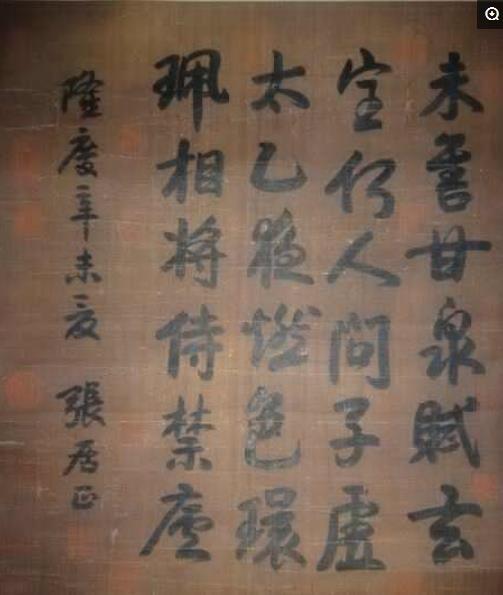 未書甘泉賦玄
室何人問子虛
太乙燈色環
珮相將侍禁廬
隆慶辛未夏 張居正